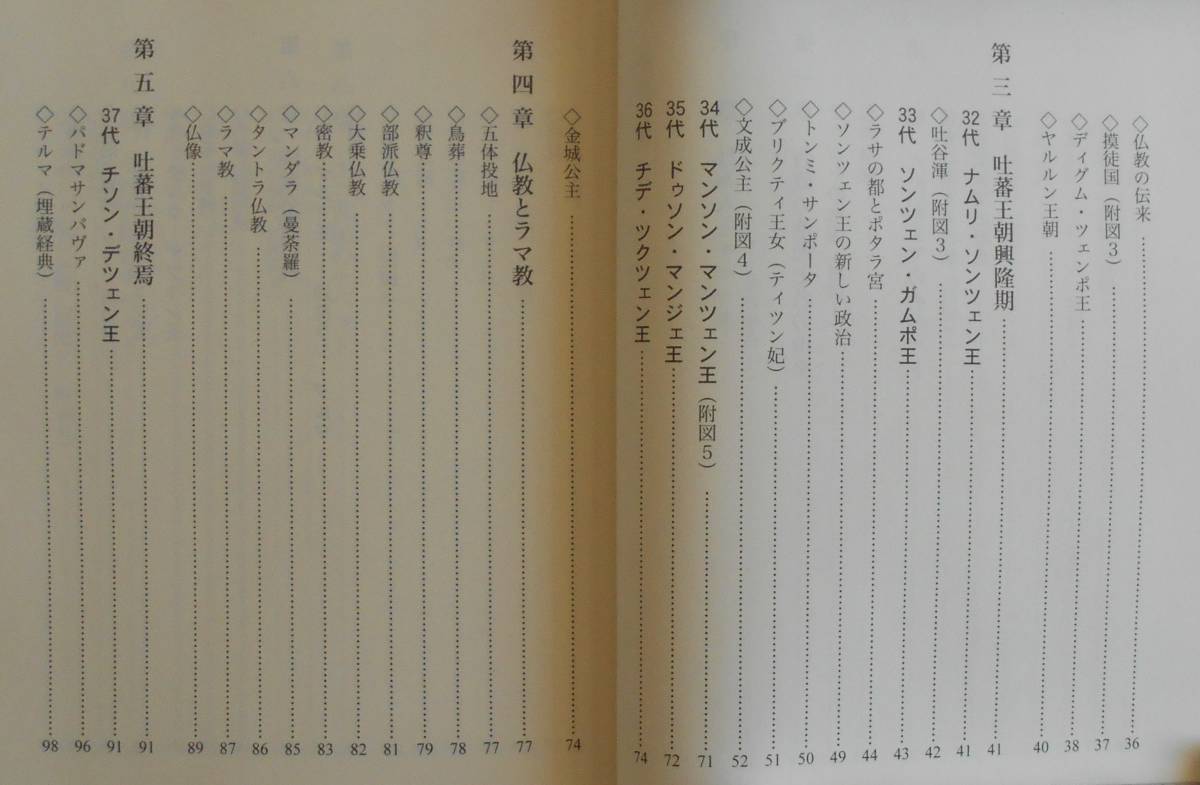 ◇仏教の伝来……36
◇摸徒国（附図３）……37
◇ディグム・ツェンポ王……38
◇ヤルルン王朝……40
第三章　吐蕃王朝興隆期……41
32代　ナムリ・ソンツェン王……41
◇吐谷渾（附図３）……42
33代　ソンツェン・ガムポ王……43
◇ラサの都とポタラ宮……44
◇ソンツェン王の新しい政治……49
◇トンミ・サンポータ……50
◇ブリクティ王女（ティツン妃）……51
◇文成公主（附図４）……52
34代　マンソン・マンツェン王（附図５）……71
35代　ドゥソン・マンジェ王……72
36代　チデ・ツクツェン王……74
◇金城公主……74
第四章　仏教とラマ教……77
◇五体投地……77
◇鳥葬……78
◇釈尊……79
◇部派仏教……81
◇大乗仏教……82
◇密教……83
◇マンダラ（曼荼羅）……85
◇タントラ仏教……86
◇ラマ教……87
◇仏像……89
第五章　吐蕃王朝終焉……91
37代　チソン・デツェン王……91
◇パドマサンバヴァ……96
◇テルマ（埋蔵経典）……98